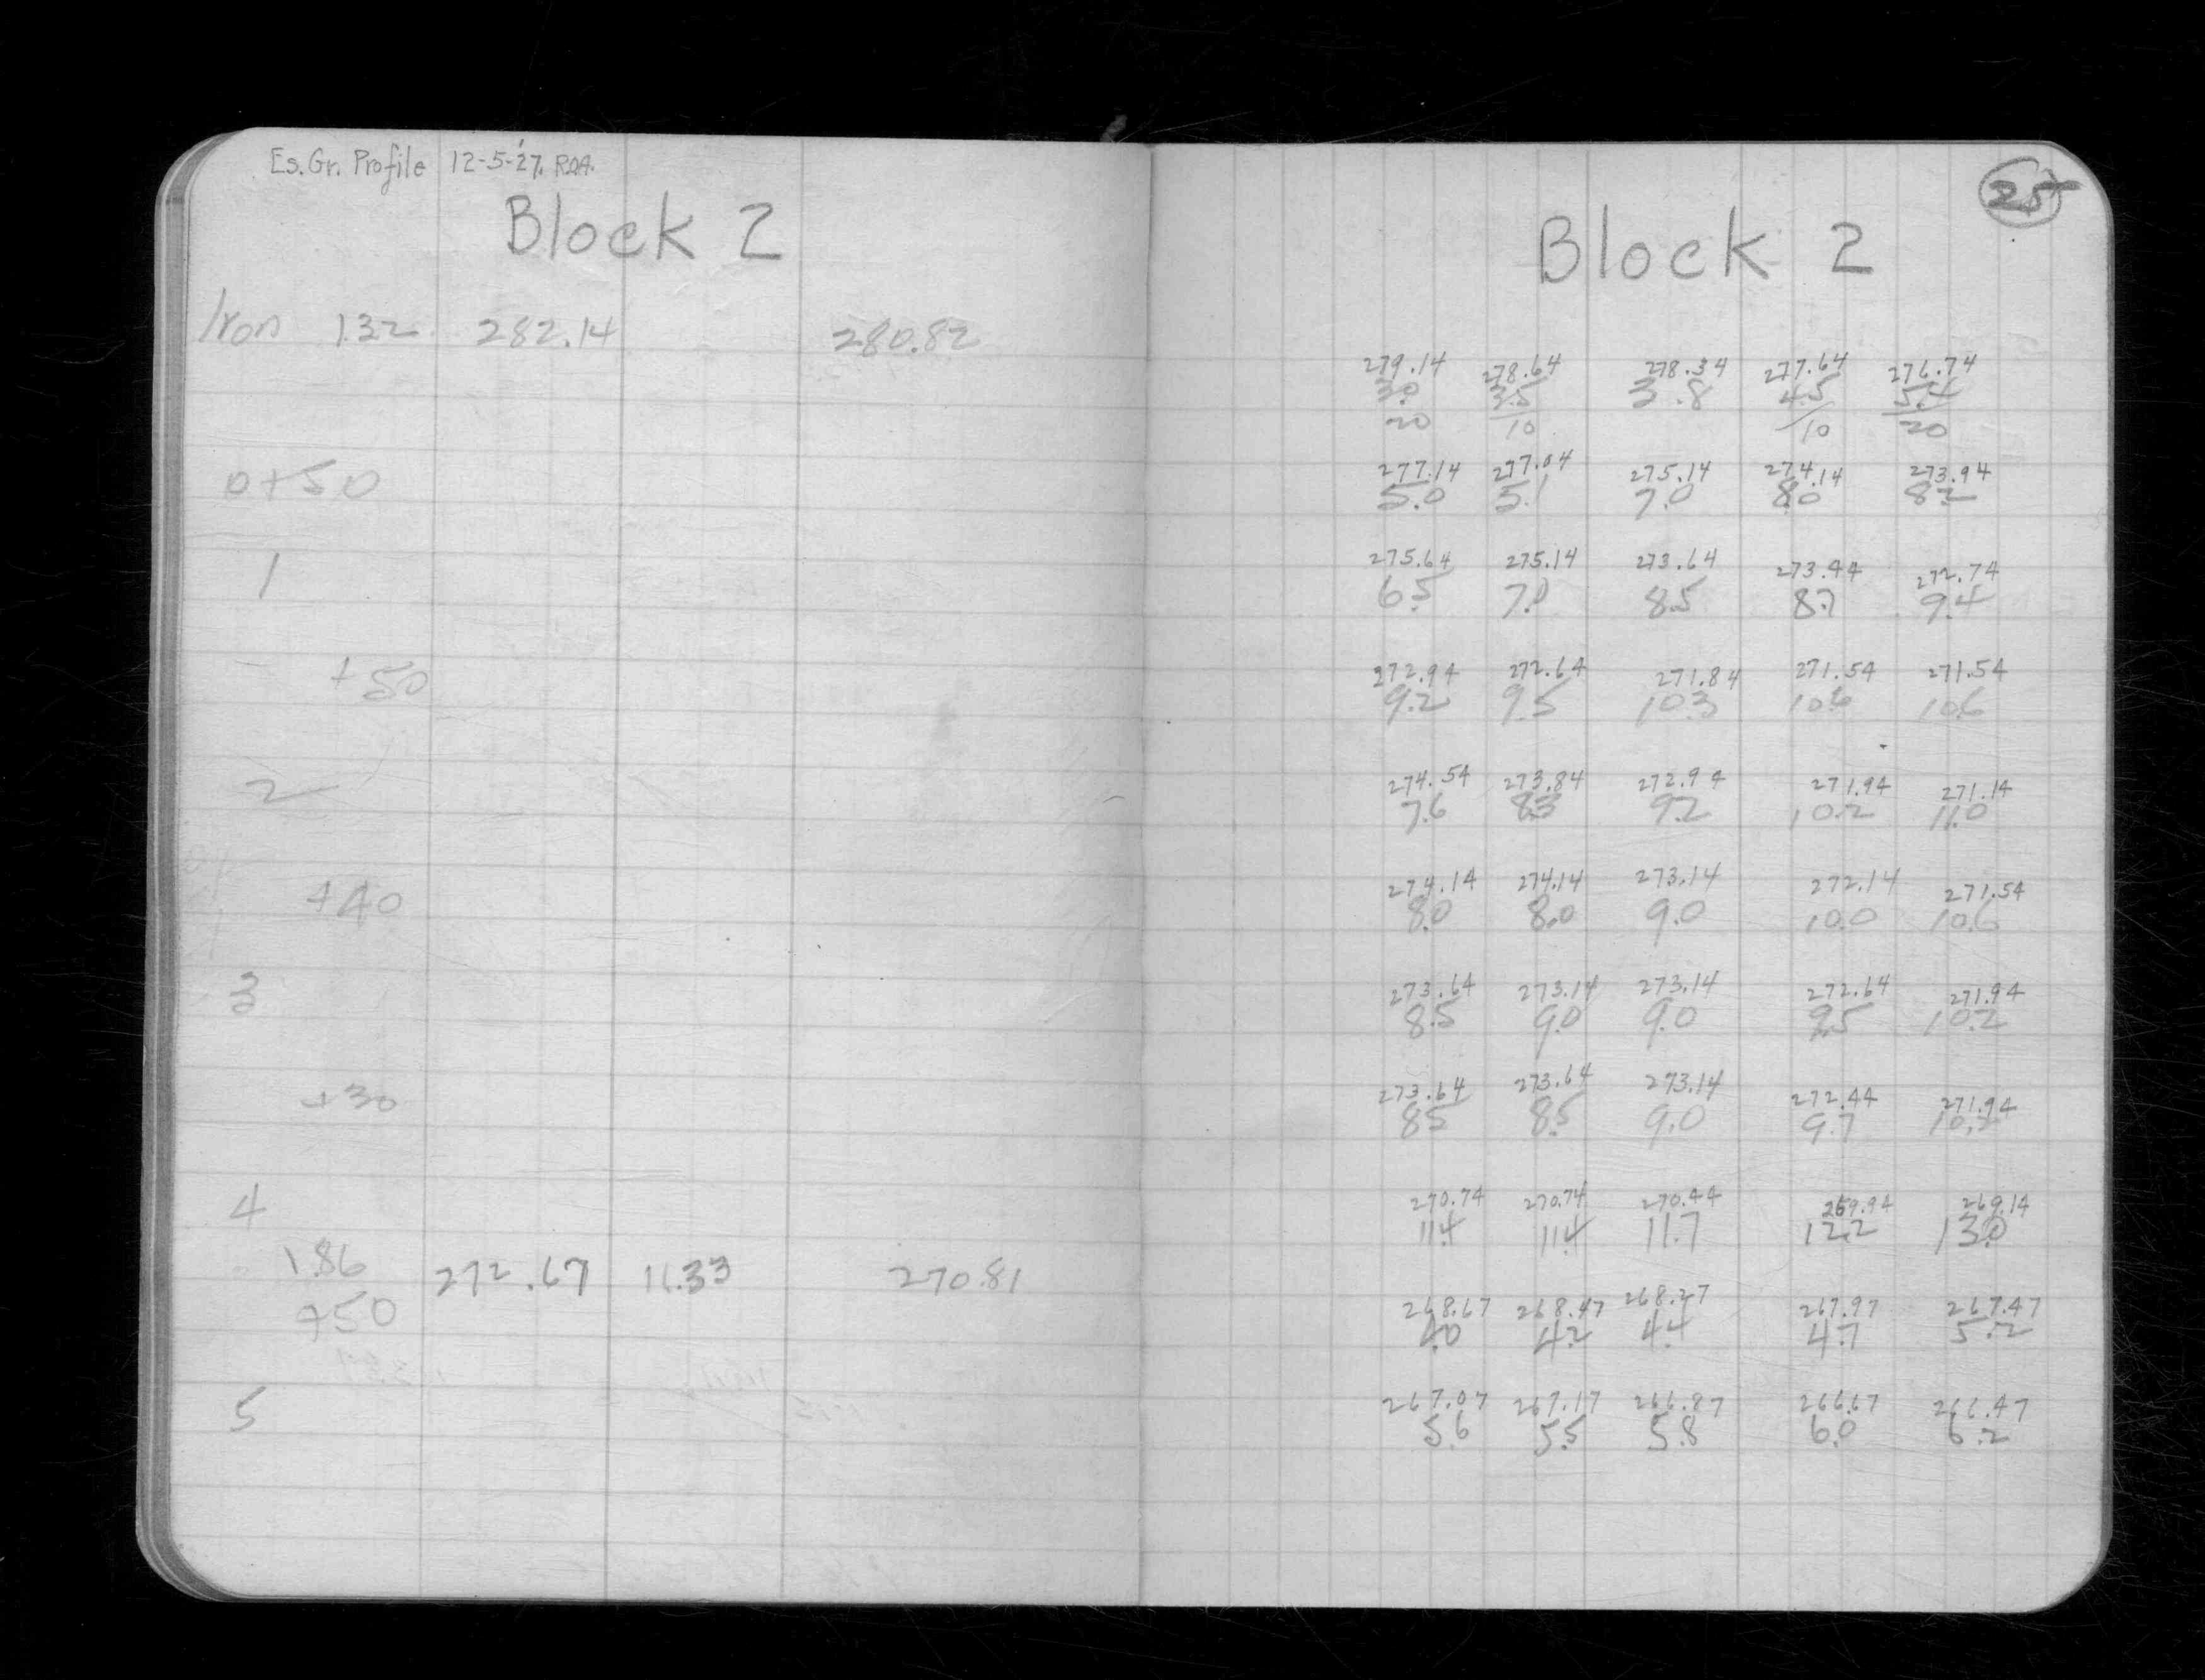 Es. Gr. Profile 12-5-'27. RDA.
Block 2
Iron 1.32 282.14 280.82
0+50
1
+50
2
+40
3
+30
4
1.86 272.67 11.33 270.81
+50
5
25
Block 2
279.14 278.64 278.34 277.64 276.74
3.0 3.5 3.8 4.5 5.4
20 10 10 20
277.14 277.04 275.14 274.14 273.94
5.0 5.1 7.0 8.0 8.2
275.64 275.14 273.64 273.44 272.74
6.5 7.0 8.5 8.7 9.4
272.94 272.64 271.84 271.54 271.54
9.2 9.5 10.3 10.6 10.6
274.54 273.84 272.94 271.94 271.14
7.6 8.3 9.2 10.2 11.0
274.14 274.14 273.14 272.14 271.54
8.0 8.0 9.0 10.0 10.6
273.64 273.14 273.14 272.64 271.94
8.5 9.0 9.0 9.5 10.2
273.64 273.64 273.14 272.44 271.94
8.5 8.5 9.0 9.7 10.2
270.74 270.74 270.44 269.94 269.14
11.4 11.4 11.7 12.2 13.0
268.67 268.47 268.27 267.97 267.47
4.0 4.2 4.4 4.7 5.2
267.07 267.17 266.87 266.67 266.47
5.6 5.5 5.8 6.0 6.2